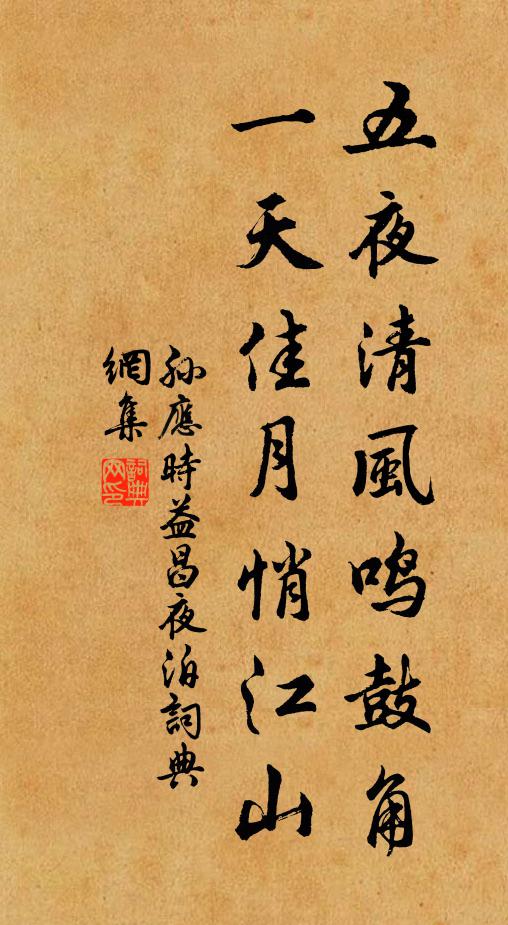 五夜清風鳴鼓角
一天佳月悄江山
孫應時益昌夜泊詞典
網集
詞典網印